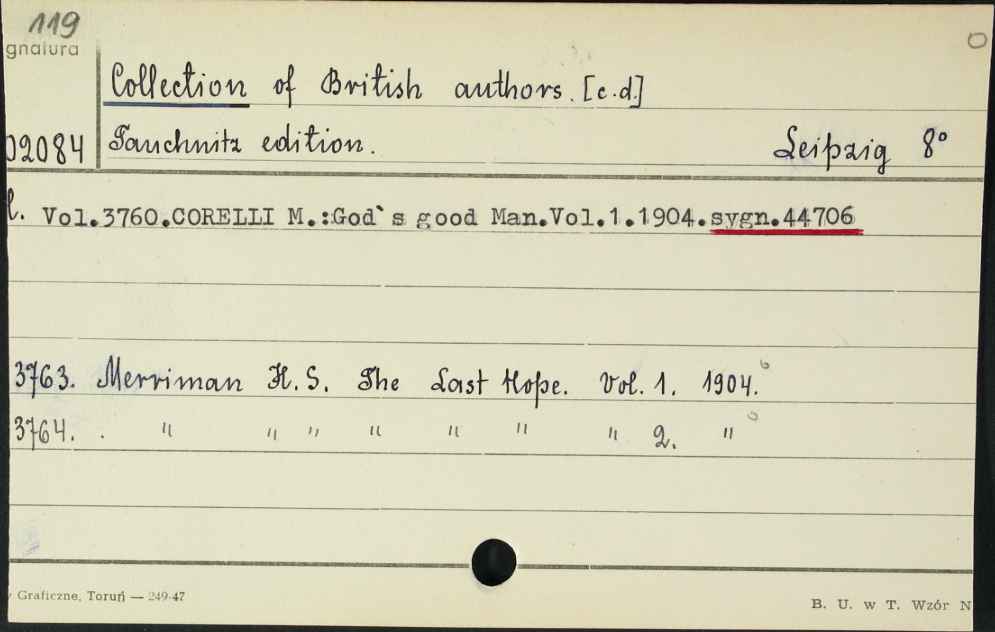 119
gnatura
Collection of British authors. [c.d.]
02084 Tauchnitz edition. Leipzig 8°
l. Vol.3760.CORELLI M.:God`s good Man.Vol.1.1904.sygn.44706
3763. Merriman H. S. The Last Hope. Vol. 1. 1904.
3764. . " " " " " " " 2. "
Graficzne, Toruń — 249-47
B. U. w T. Wzór N